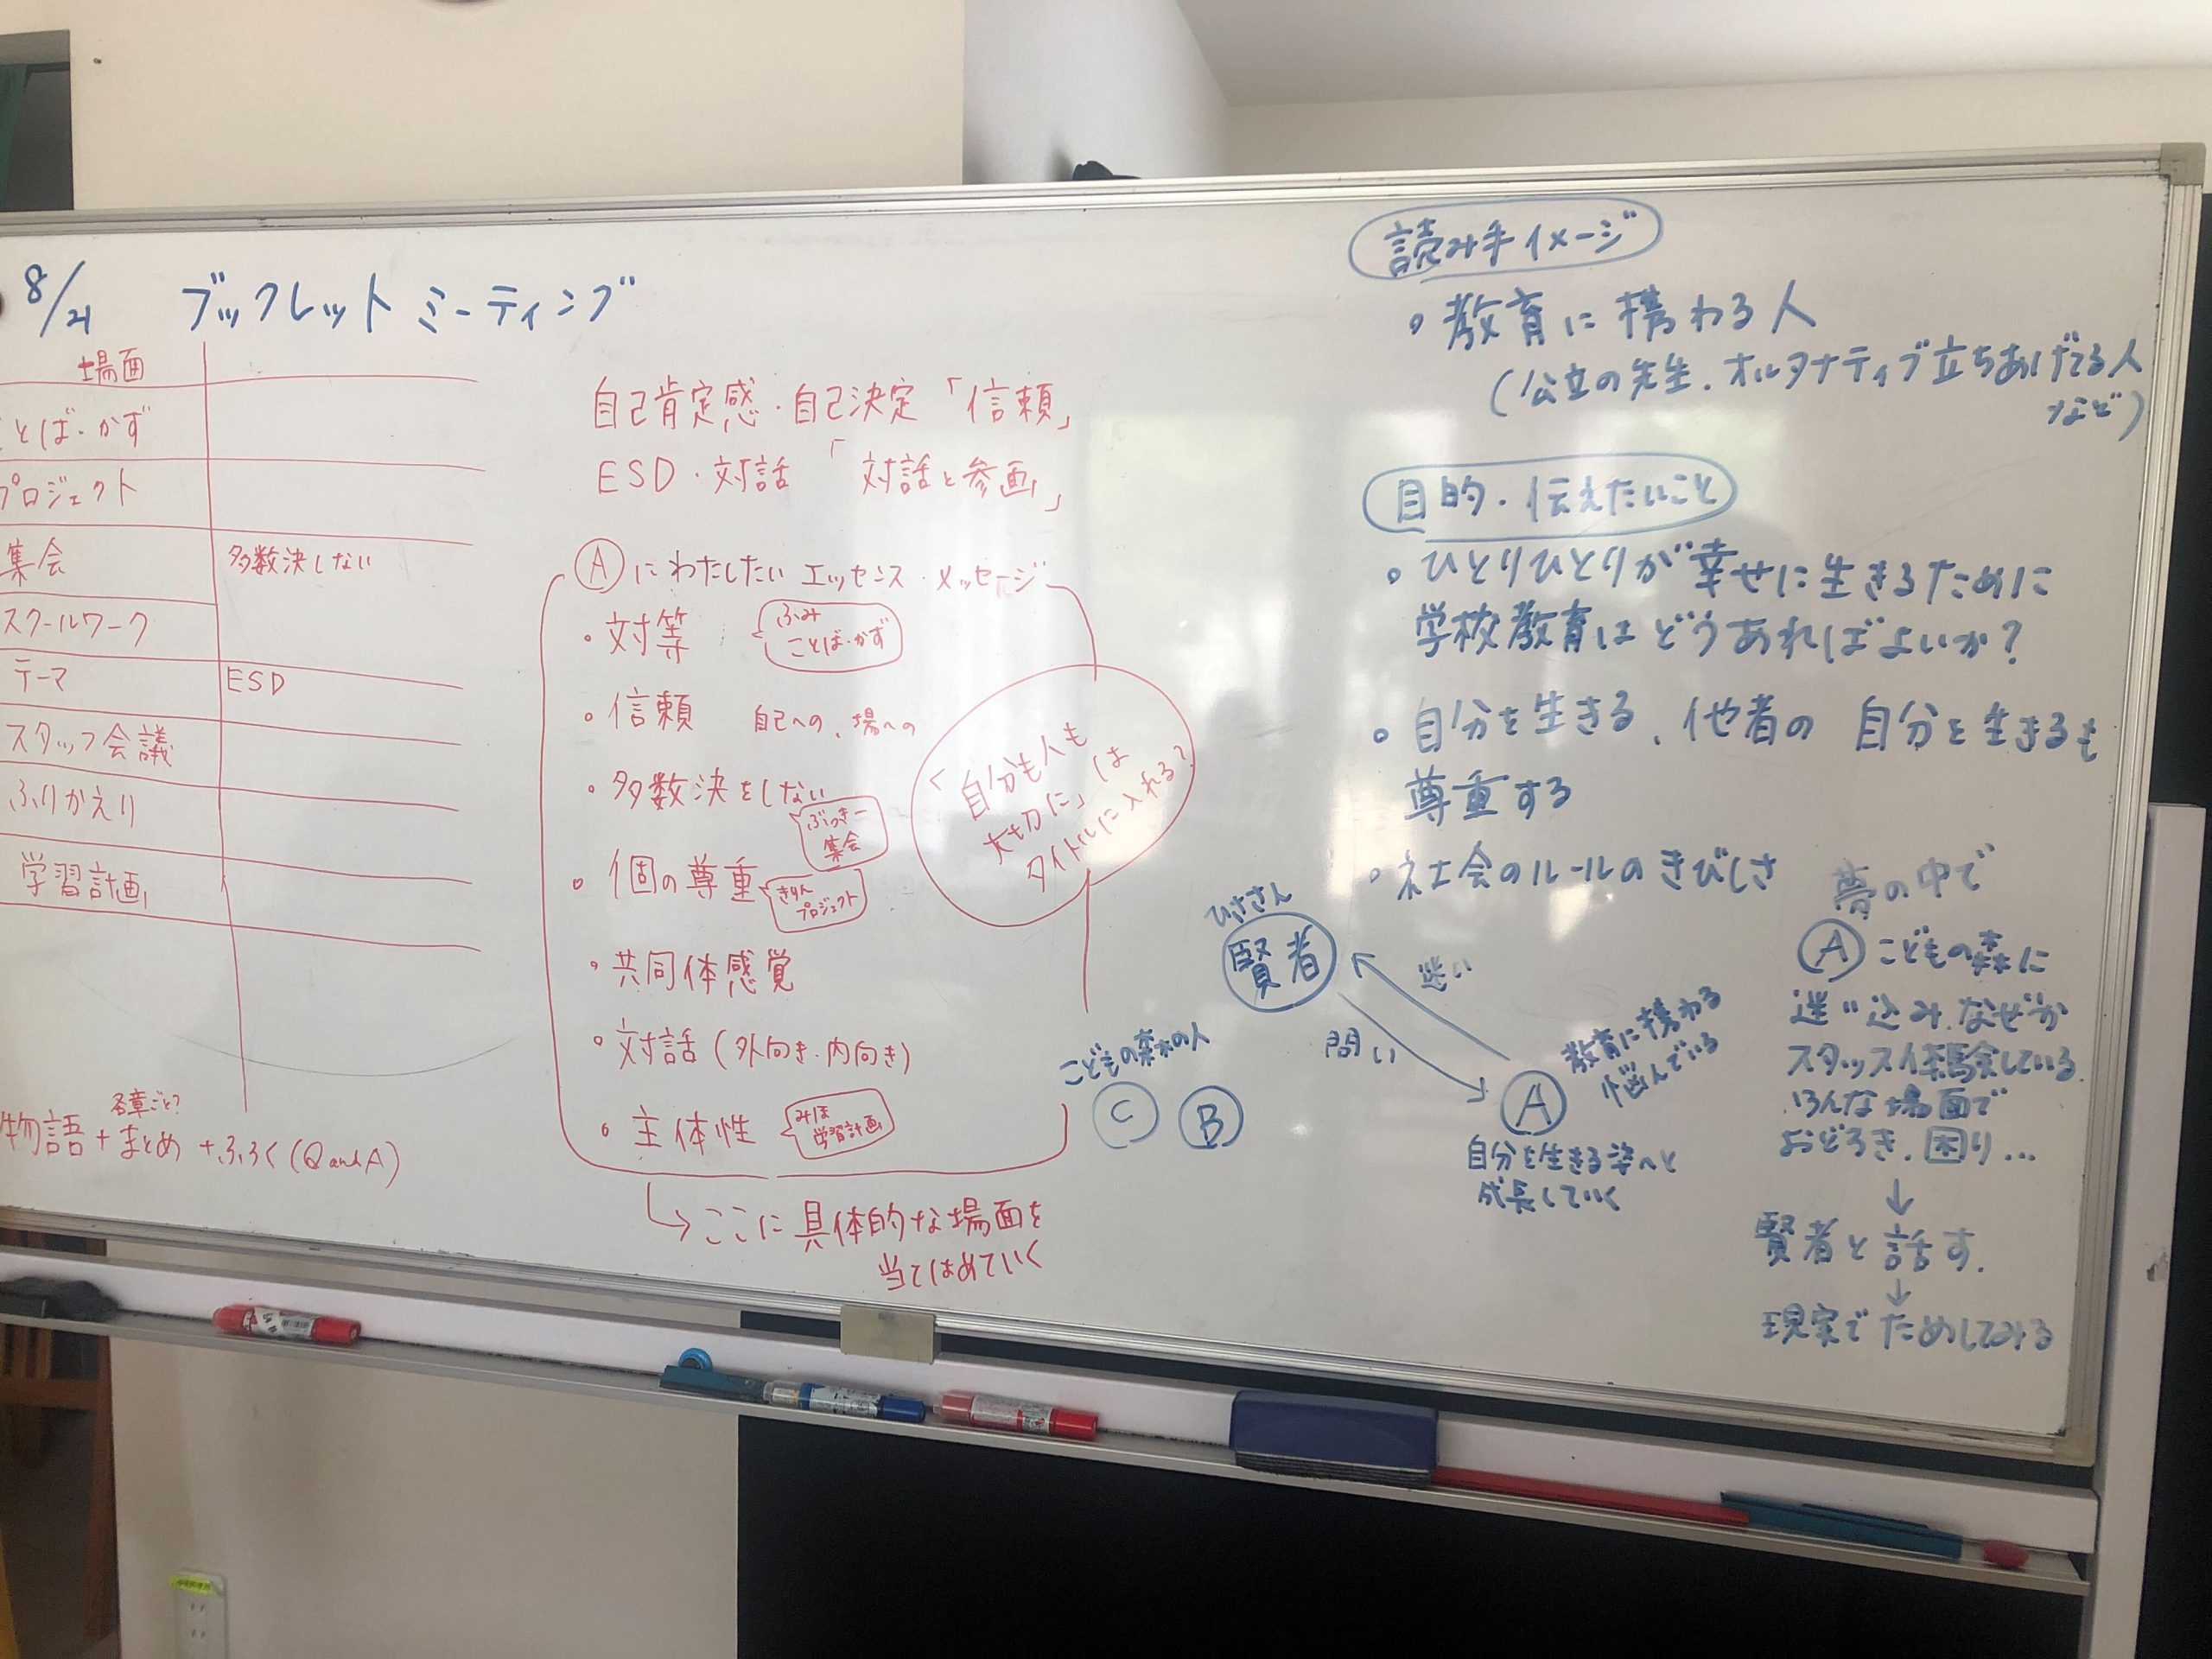 8/21 ブックレットミーティング
場面
ことば・かず
プロジェクト
集会 多数決しない
スクールワーク
テーマ ESD
スタッフ会議
ふりかえり
学習計画
各章ごと?
物語+まとめ+ふろく(QandA)
自己肯定感・自己決定「信頼」
ESD・対話「対話と参画」
Ⓐにわたしたいエッセンス・メッセージ
・対等
ふみ
ことば・かず
・信頼 自己への、場への
・多数決をしない
ぶっきー
集会
・個の尊重
きりん
プロジェクト
・共同体感覚
・対話(外向き・内向き)
・主体性
みほ
学習計画
「自分も人も
大切に」は
タイトルに入れる?
ここに具体的な場面を
当てはめていく
読み手イメージ
・教育に携わる人
(公立の先生、オルタナティブ立ちあげてる人
など)
目的・伝えたいこと
・ひとりひとりが幸せに生きるために
学校教育はどうあればよいか?
・自分を生きる、他者の自分を生きるも
尊重する
・社会のルールのきびしさ
ひささん
賢者
迷い
問い
こどもの森の人
Ⓒ Ⓑ
Ⓐ
教育に携わる
悩んでいる
自分を生きる姿へと
成長していく
夢の中で
Ⓐこどもの森に
迷い込み、なぜか
スタッフ体験している
いろんな場面で
おどろき、困り…
↓
賢者と話す.
↓
現実でためしてみる